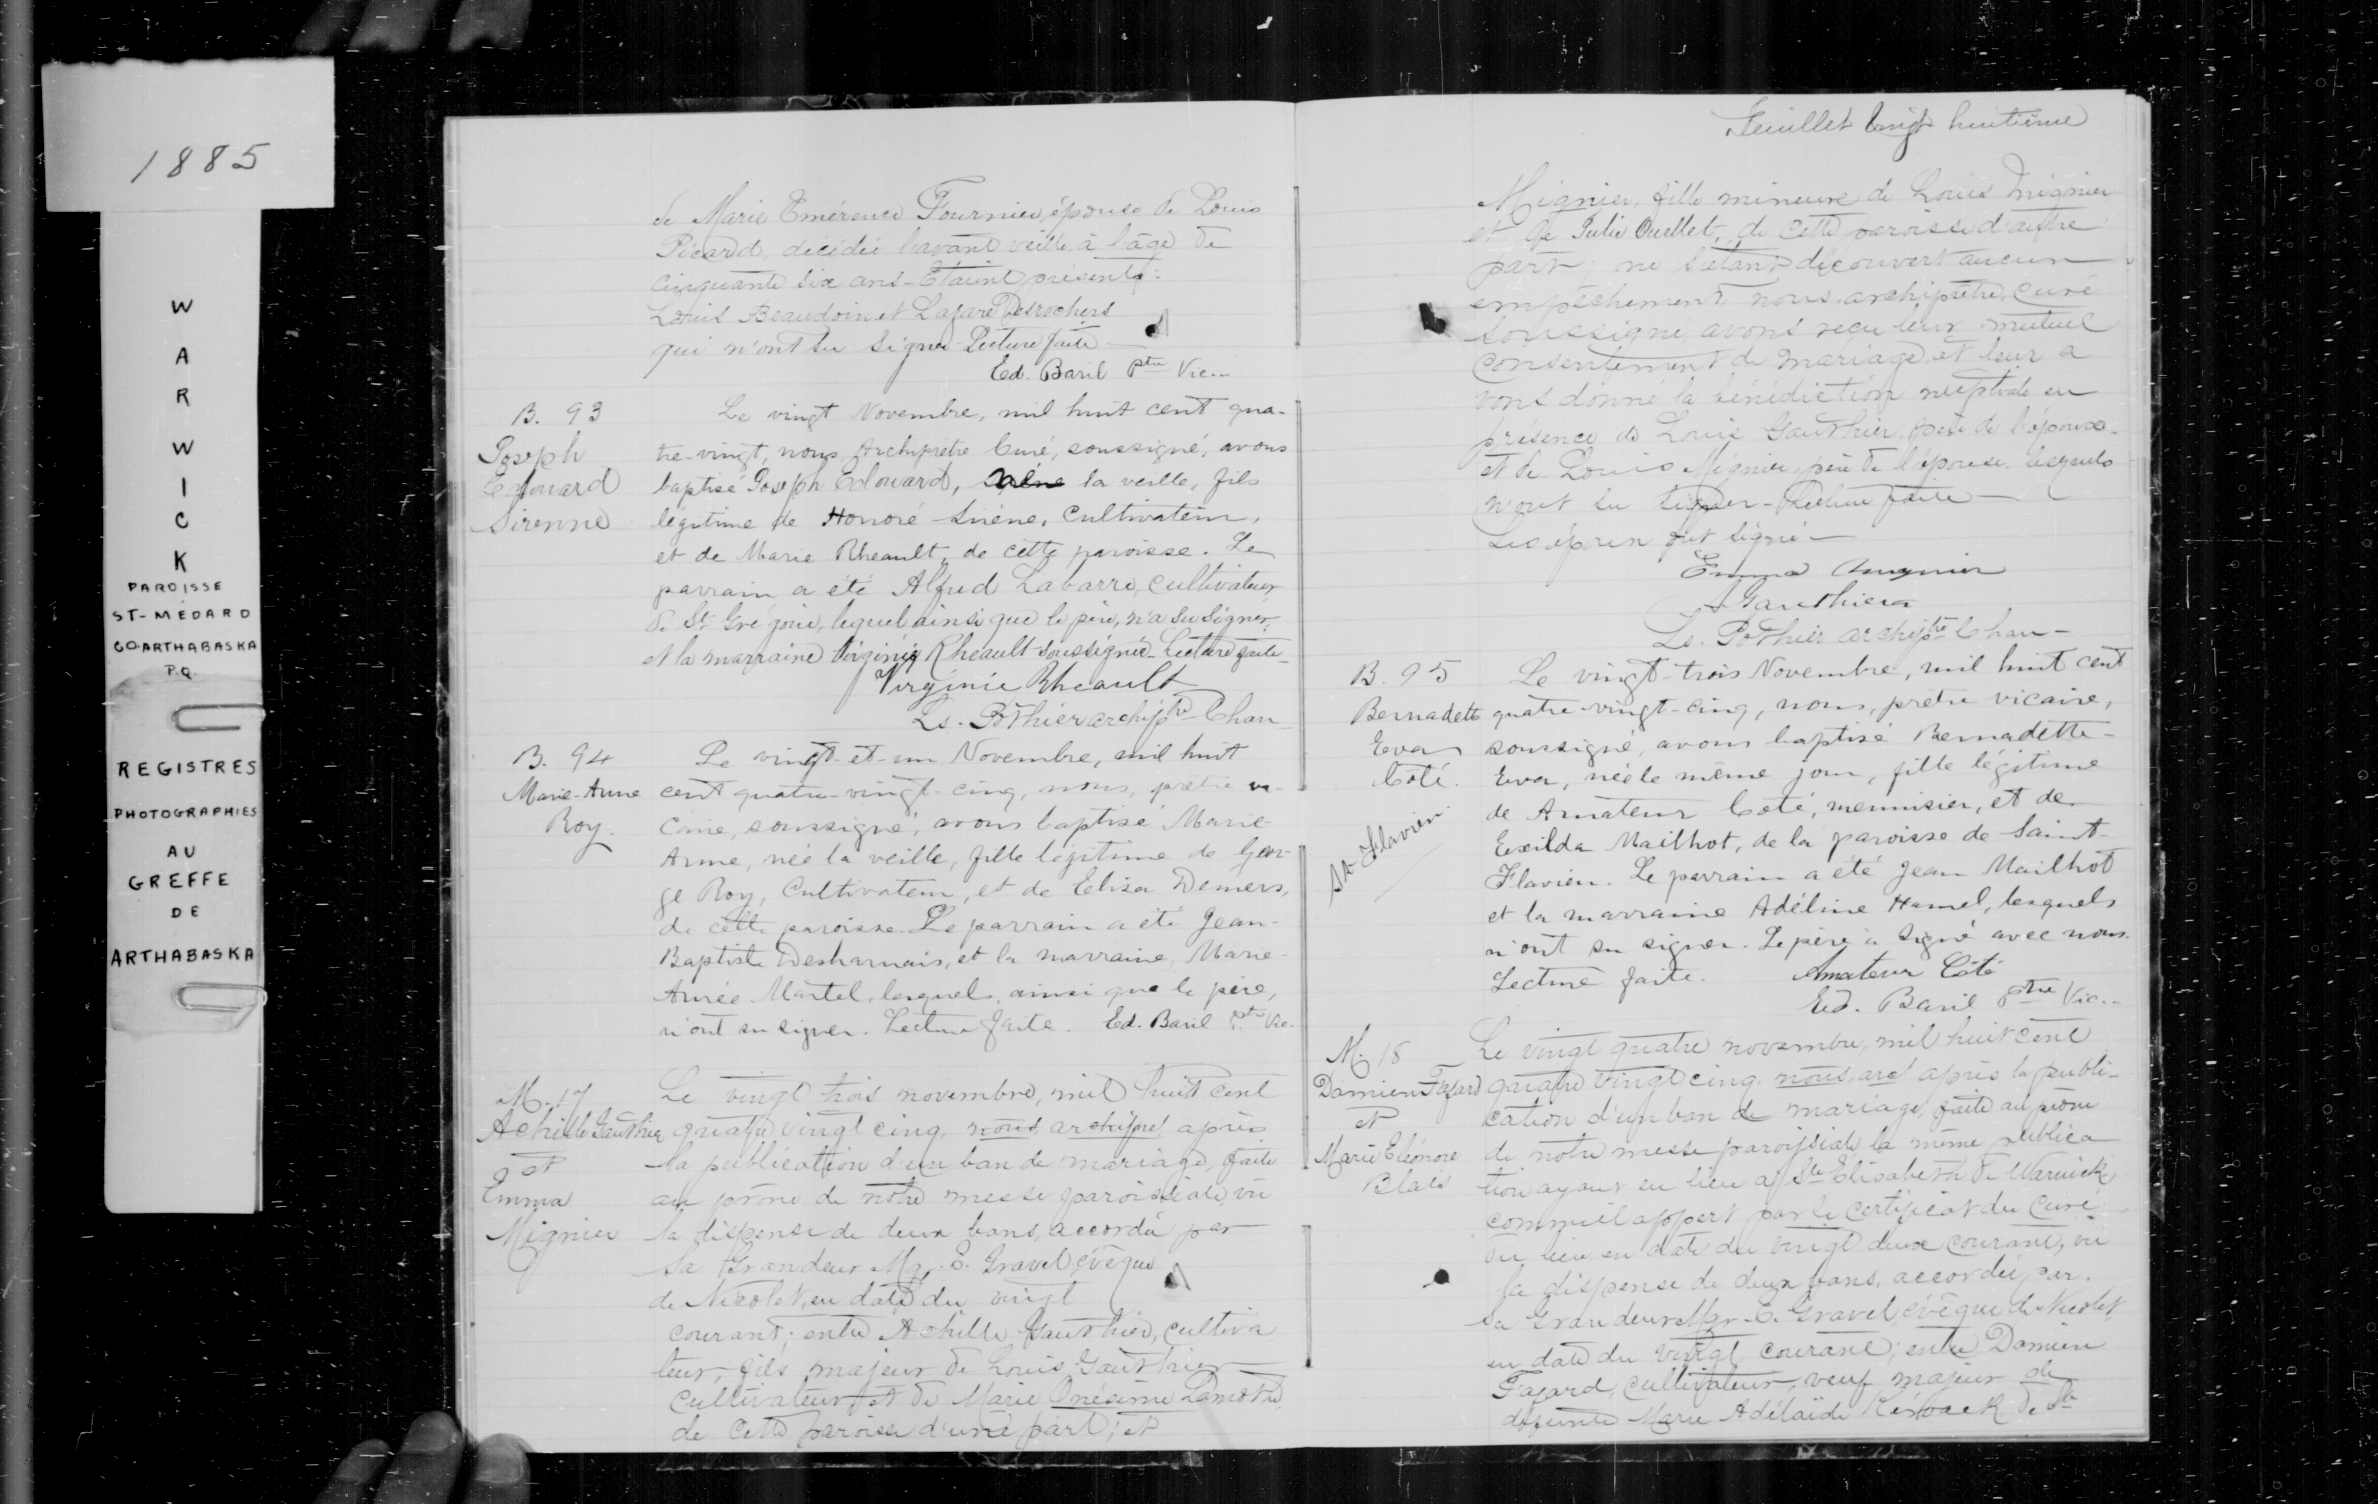 1885
W
A
R
W
I
C
K
PAROISSE
ST-MÉDARD
CO. ARTHABASKA
P.Q.
REGISTRES
PHOTOGRAPHIES
AU
GREFFE
DE
ARTHABASKA
de Marie Emérence Fournier, épouse de Louis
Picard, décédée l'avant veille à l'âge de
cinquante six ans - Etaient présents:
Louis Beaudoin et Lazare Desrochers
qui n'ont su signer - Lecture faite -
Ed. Baril Ptre Vic.
B. 93
Joseph
Edouard
Sirenne
Le vingt Novembre, mil huit cent qua-
tre-vingt, nous, Archiprêtre Curé, soussigné, avons
baptisé Joseph Edouard, la veille, fils
légitime de Honoré Sirène, Cultivateur,
et de Marie Rheault, de cette paroisse. Le
parrain a été Alfred Labarre, cultivateur
de St Grégoire, lequel ainsi que le père, n'a su signer,
et la marraine Virginie Rheault soussignée - Lecture faite -
Virginie Rheault
Ls. Pothier archiptre Chan
B. 94
Marie-Anne
Roy.
Le vingt-et-un Novembre, mil huit
cent quatre-vingt-cinq, nous, prêtre vi-
caire, soussigné, avons baptisé Marie-
Anne, née la veille, fille légitime de Geor-
ge Roy, Cultivateur, et de Eliza Demers,
de cette paroisse. Le parrain a été Jean-
Baptiste Desharnais, et la marraine, Marie-
Aurée Martel, lesquels, ainsi que le père,
n'ont su signer. Lecture faite. Ed. Baril Ptre Vic.
M. 17
Achille Gauthier
et
Emma
Mignier
Le vingt trois novembre, mil huit cent
quatre vingt cinq, nous archipret après
la publication d'un ban de mariage, faite
au prône de notre messe paroissiale, vu
la dispense de deux bans, accordée par
Sa Grandeur Mgr. E. Gravel, évêque
de Nicolet, en date du vingt
courant; entre Achille Gauthier, cultiva
teur, fils majeur de Louis Gauthier
cultivateur et de Marie Onésime Lamothe
de cette paroisse d'une part; et
Feuillet vingt huitième
Mignier, fille mineure de Louis Mignier
et de Julie Ouellet, de cette paroisse d'autre
part; ne s'étant découvert aucun
empêchement nous archiprêtre, curé
soussigné avons reçu leur mutuel
consentement de mariage et leur a
vons donné la bénédiction nuptiale en
présence de Louis Gauthier père de l'époux
et de Louis Mignier, père de l'épouse lesquels
n'ont su signer - Lecture faite -
Les époux ont signé -
Emma
A Gauthier
Ls. Pothier archiptre Chan -
B. 95
Bernadette
Eva
Côté.
St Flavien
Le vingt-trois Novembre, mil huit cent
quatre-vingt-cinq, nous, prêtre vicaire,
soussigné, avons baptisé Bernadette-
Eva, née le même jour, fille légitime
de Amateur Coté, menuisier, et de
Exilda Mailhot, de la paroisse de Saint-
Flavien. Le parrain a été Jean Mailhot
et la marraine Adéline Hamel, lesquels
n'ont su signer. Le père a signé avec nous.
Lecture faite. Amateur Côté
Ed. Baril Ptre Vic.
M. 18
Damien Fazard
et
Marie Eléonore
Blais
Le vingt quatre novembre, mil huit cent
quatre vingt cinq, nous arcd après la publi-
cation d'un ban de mariage, faite au prône
de notre messe paroissiale la même publica
tion ayant eu lieu a Ste Elisabeth de Warwick
comme il appert par le certificat du Curé
du lieu en date du vingt deux courant, vu
la dispense de deux bans, accordée par
sa Grandeur Mgr. E. Gravel, évêque de Nicolet
en date du vingt courant; entre Damien
Fazard, cultivateur, veuf majeur de
défunte Marie Adélaïde Kérouack de Ste